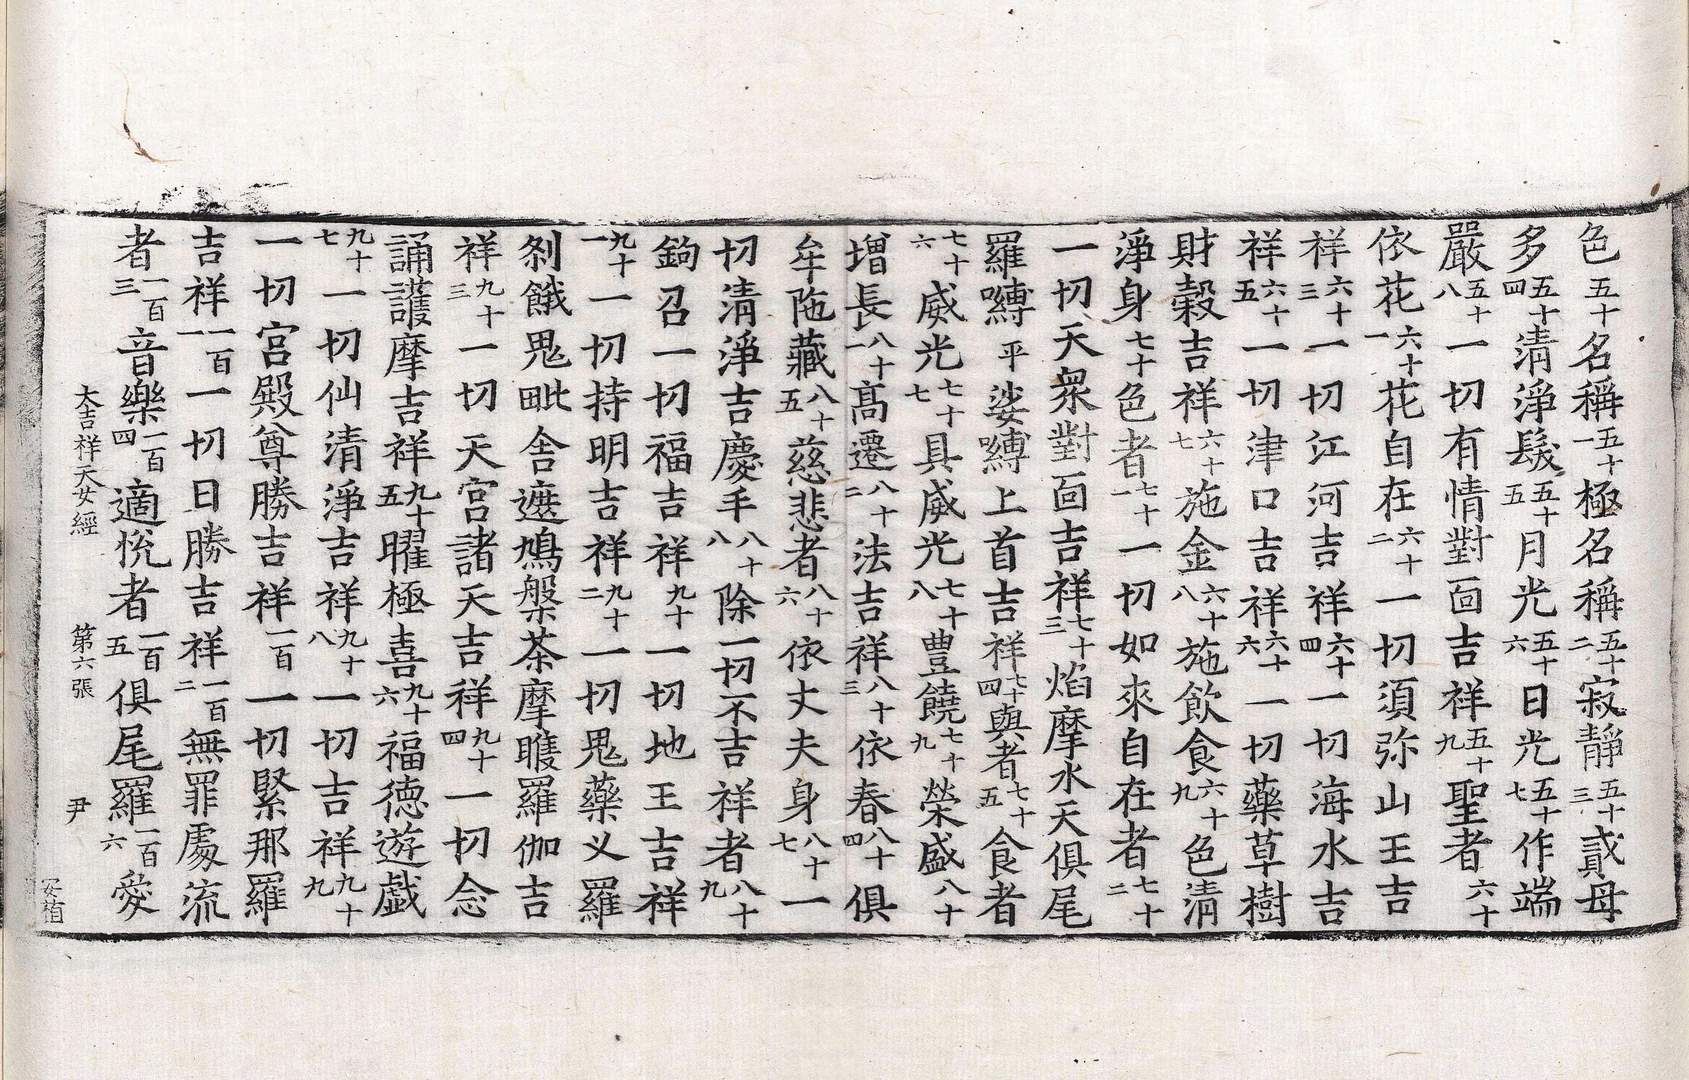 色五十名稱五十一極名稱五十二寂靜五十三貳母
多五十四清淨髮五十五月光五十六日光五十七作端
嚴五十八一切有情對面吉祥五十九聖者六十
依花六十一花自在六十二一切須弥山王吉
祥六十三一切江河吉祥六十四一切海水吉
祥六十五一切津口吉祥六十六一切藥草樹
財糓吉祥六十七施金六十八施飲食六十九色清
淨身七十色者七十一一切如來自在者七十二
一切天衆對面吉祥七十三焰摩水天俱尾
羅嚩平娑嚩上首吉祥七十四與者七十五食者
七十六威光七十七具威光七十八豊饒七十九榮盛八十
增長八十一髙遷八十二法吉祥八十三依春八十四俱
牟陁藏八十五慈悲者八十六依丈夫身八十七一
切清淨吉慶手八十八除一切不吉祥者八十九
鉤召一切福吉祥九十一切地王吉祥
九十一一切持明吉祥九十二一切鬼藥义羅
刹餓鬼毗舍遮鳩槃茶摩睺羅伽吉
祥九十三一切天宫諸天吉祥九十四一切念
誦護摩吉祥九十五曜極喜九十六福徳遊戯
九十七一切仙清淨吉祥九十八一切吉祥九十九
一切宫殿尊勝吉祥一百一切緊那羅
吉祥一百一一切日勝吉祥一百二無罪處流
者一百三音樂一百四適恱者一百五俱尾羅一百六愛
大吉祥天女經 第六張 尹